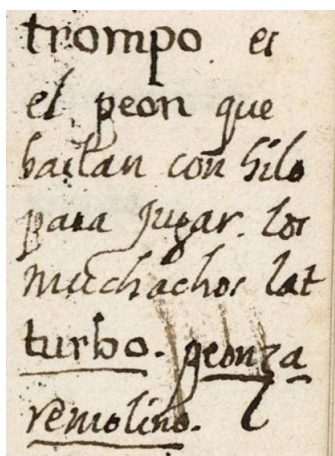 trompo es
el peon que
bailan con hilo
para jugar. los
muchachos lat
turbo. peonza
remolino.